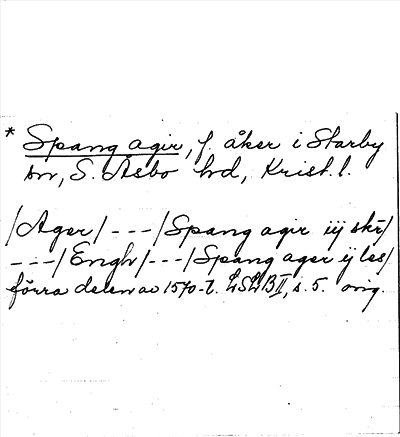 * Spang agir, f. åker i Starby
sn, S. Åsbo hd, Krist. l.
/Ager/ --- /Spang agir iij skr/
--- /Engh/ --- /Spang ager ij les/
förra delen av 1570-t. LSLB II, s. 5. orig.